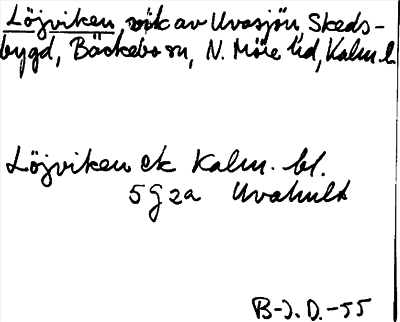 Löjviken, vik av Uvasjön, Skeds-
bygd, Bäckebo sn, N. Möre hd, Kalm. l.
Löjviken ek Kalm. bl.
5 G 2a Uvahult
B-J. D. -55